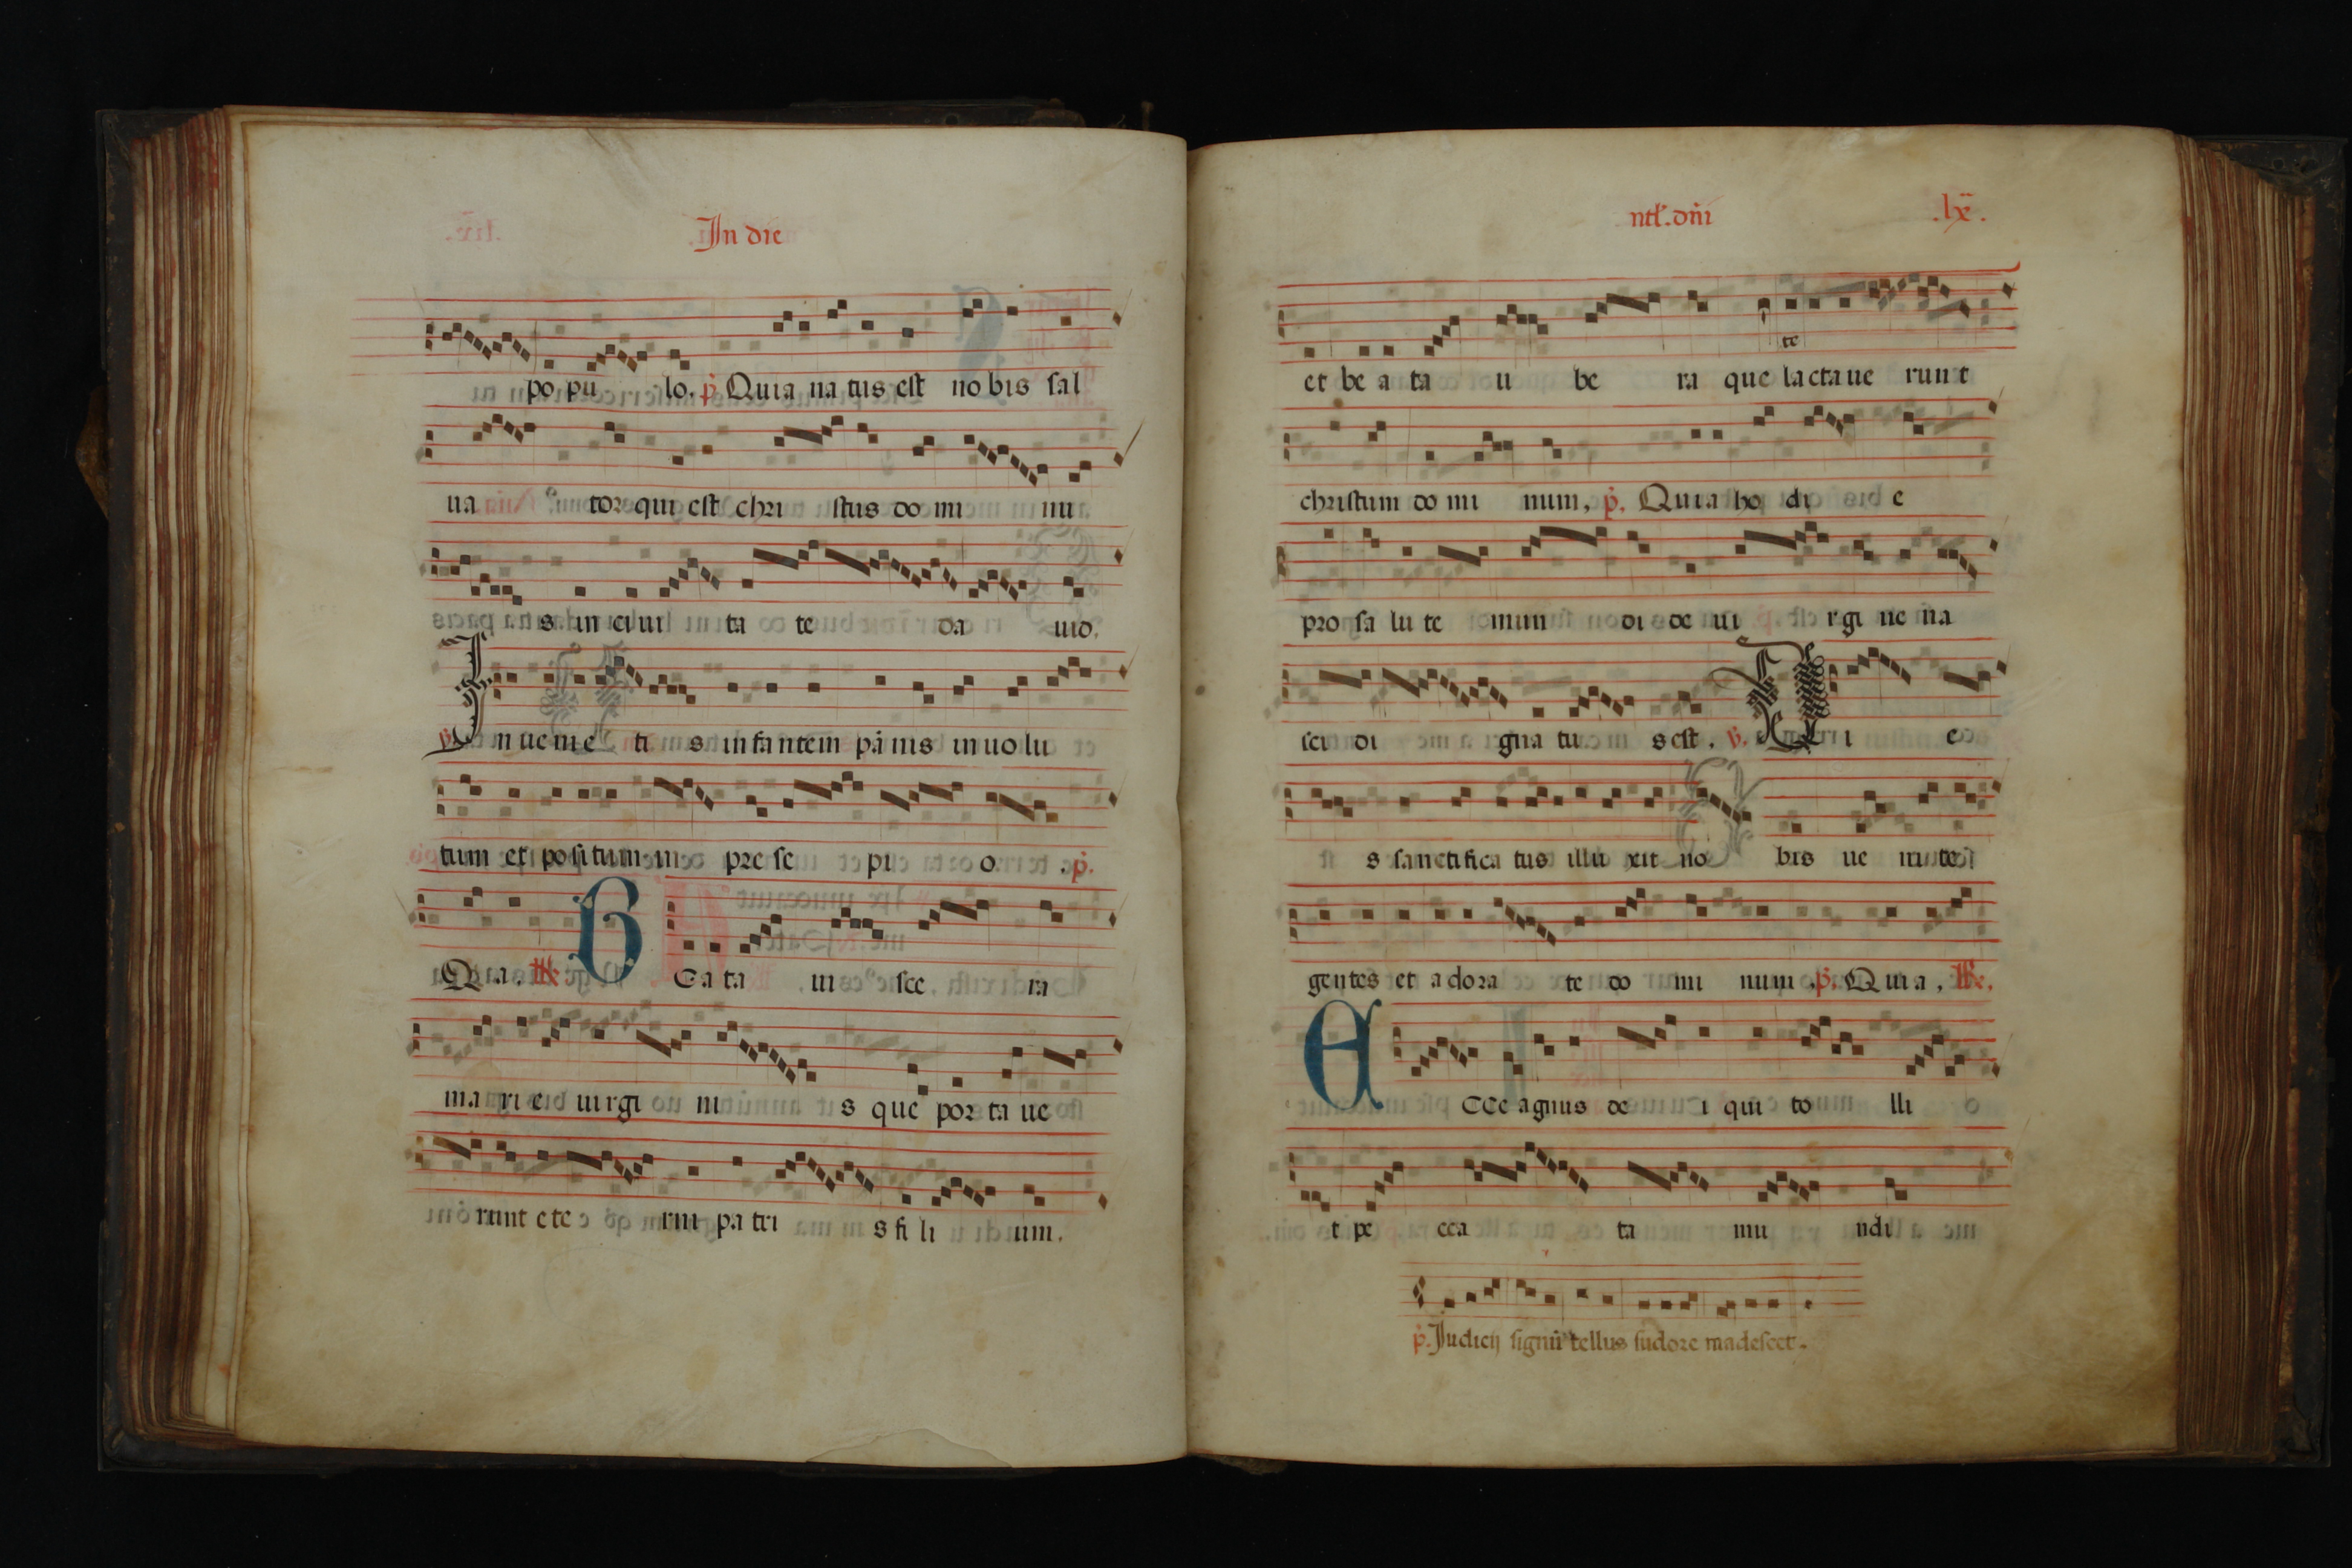 In die
po pu lo. p̄. Quia na tus est no bis sal
ua tor qui est chri stus do mi nu
s in ciui ta te da uid.
℣. I n ue nie ti s in fa ntem pānis in uo lu
tum et po si tum in pre se pi o. p̄.
Quia. B ea ta ui sce ra
ma ri e uirgi ni s que por ta ue
runt ete rni pa tri s fi li um.
ntl'. dn̄i .lx.
et be a ta u be ra que lactaue runt
te
christum do mi num, p̄. Quia ho di e
pro sa lu te mun di de ui rgi ne na
sci di gna tu s est. ℣. D i e
s sancti fica tus illu xit no bis ue ni te
gentes et adora te do mi num. p̄. Quia,
E cce agnus de i qui to lli
t pe cca ta mu ndi
p̄. Iudicij signū tellus sudore madescet.